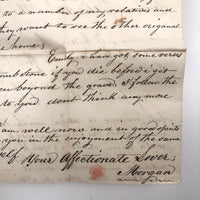 to a number of my relatives and
they want to see the other original
home!
Emily i have got some verses
tomb stone if you die before i get
beyond the grave, i follow the
to you dont think any more
am well now and in good spirits
you in the enjoyment of the same
self Your Affectionate Lover,
Morgan